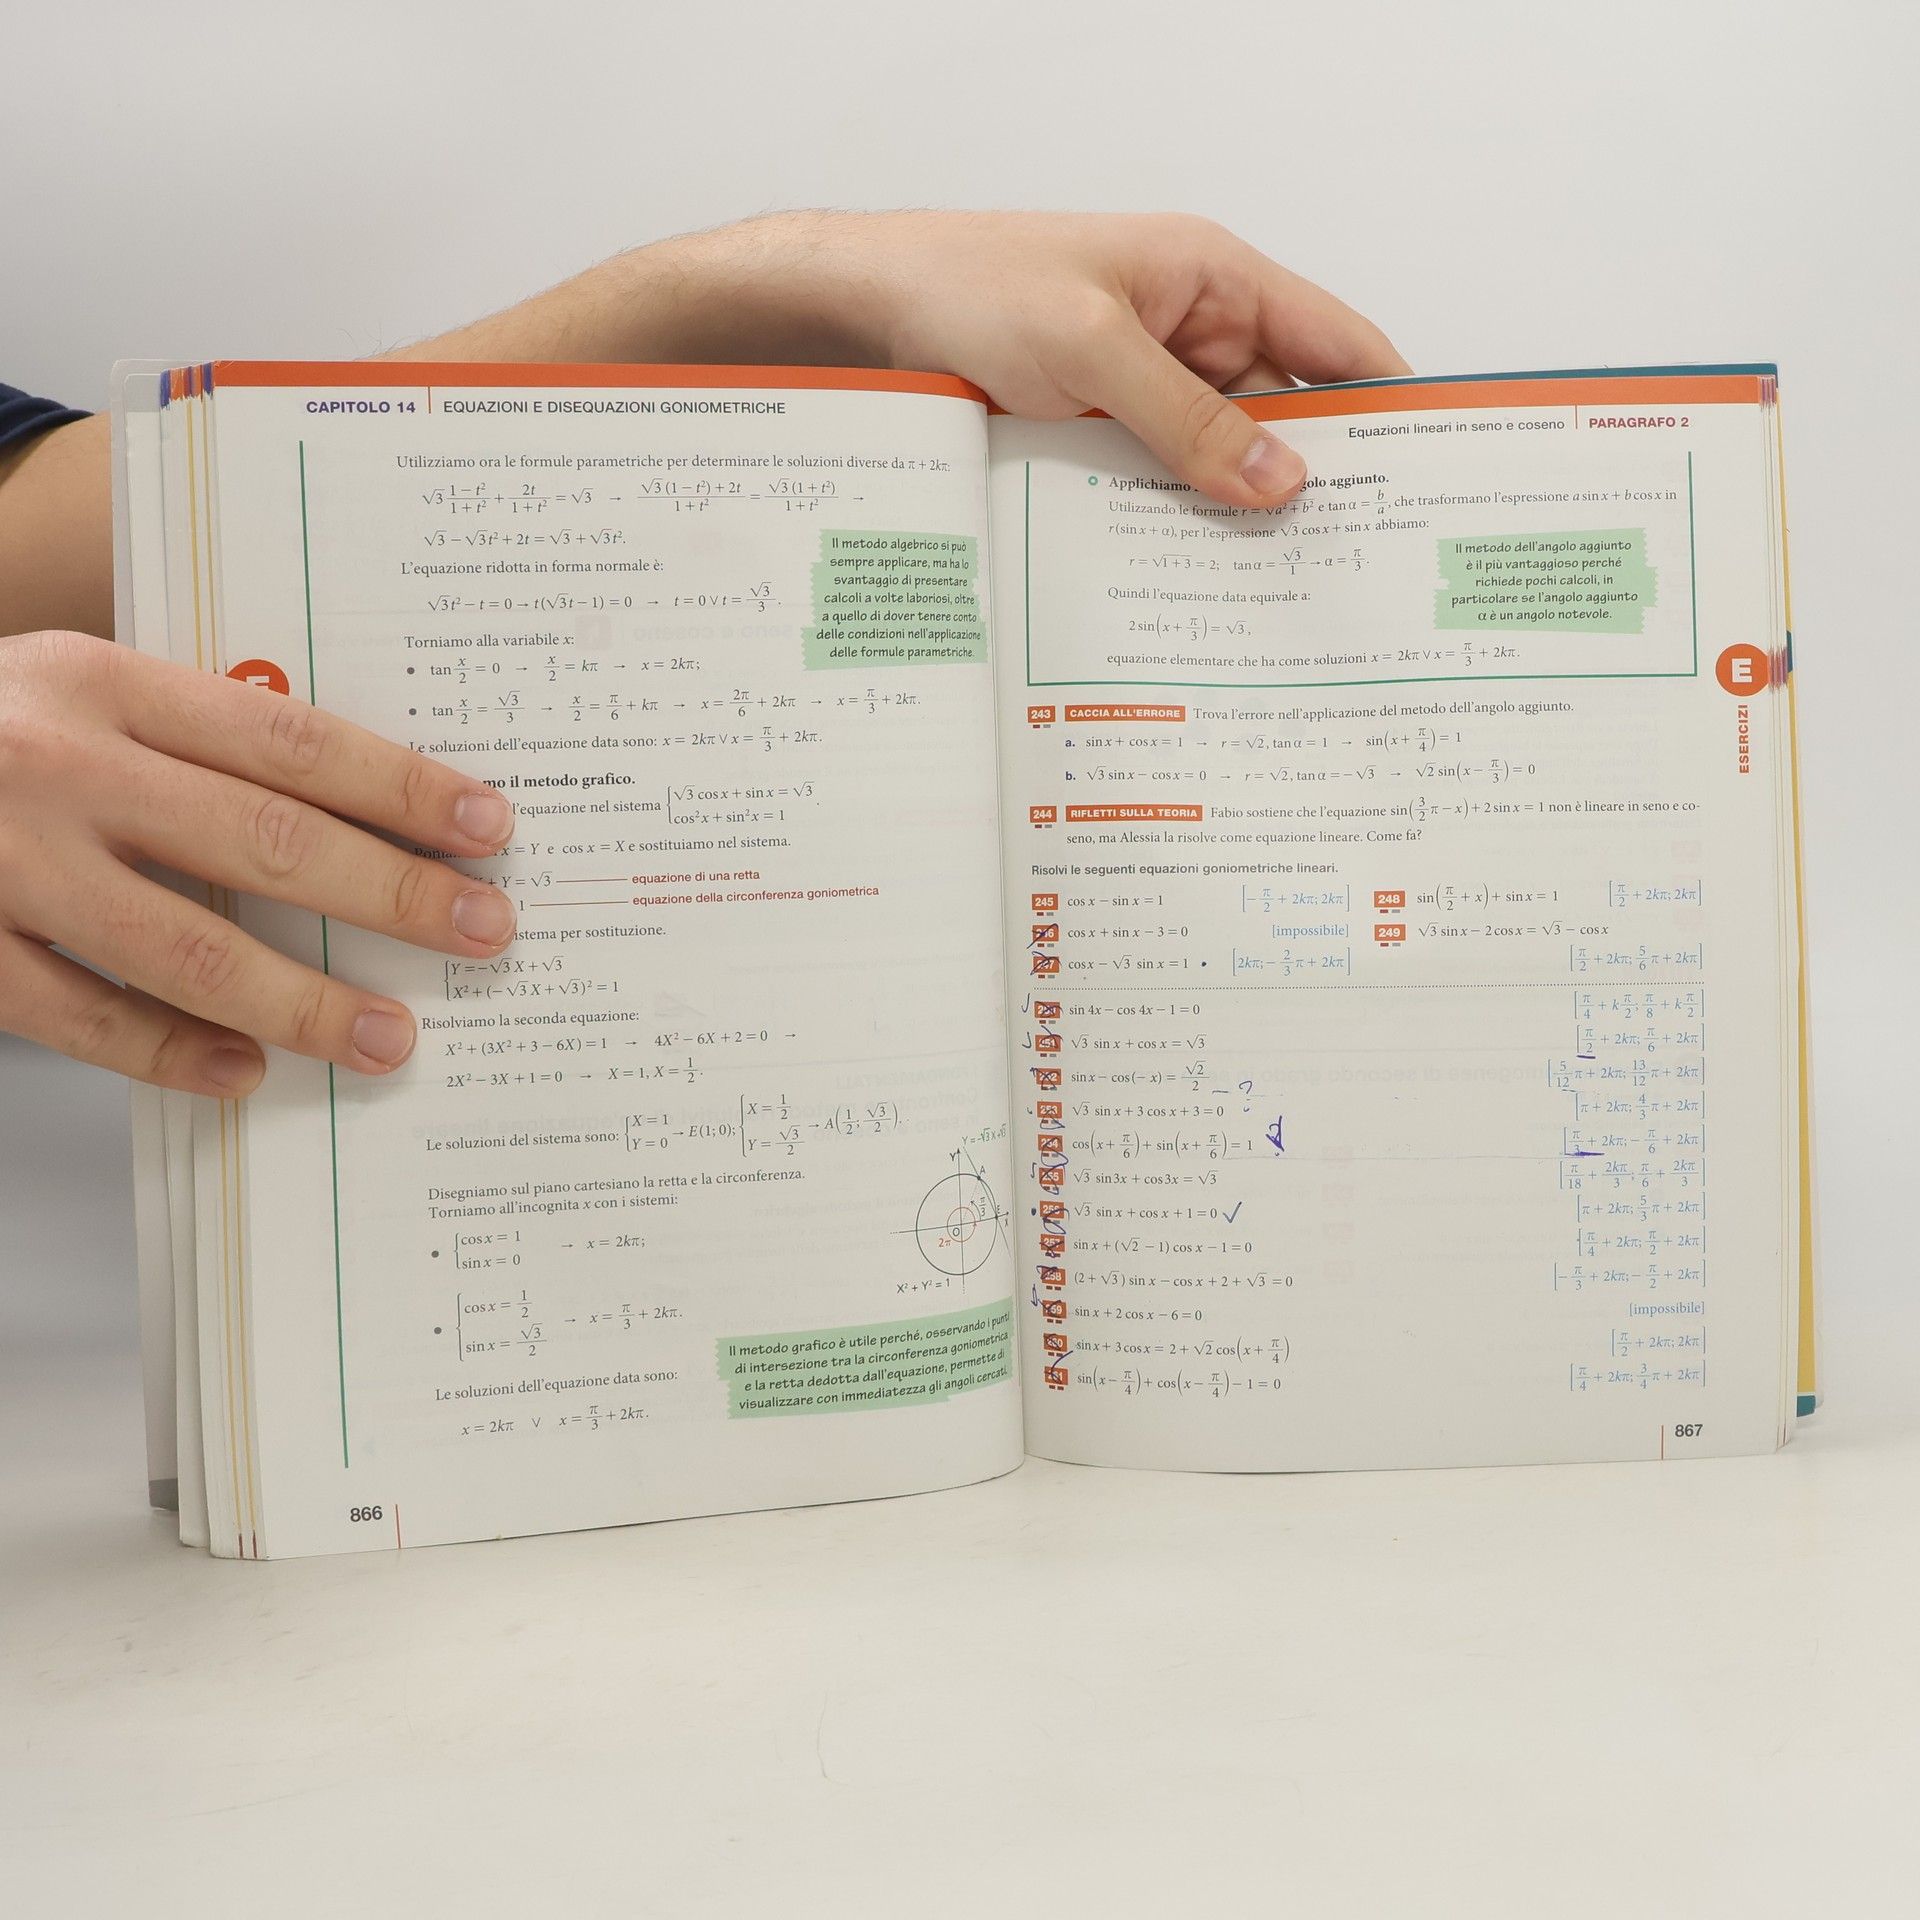 CAPITOLO 14 | EQUAZIONI E DISEQUAZIONI GONIOMETRICHE
Utilizziamo ora le formule parametriche per determinare le soluzioni diverse da π + 2kπ:
√3 (1 − t²)/(1 + t²) + 2t/(1 + t²) = √3 → (√3(1 − t²) + 2t)/(1 + t²) = √3(1 + t²)/(1 + t²) →
√3 − √3t² + 2t = √3 + √3t².
L'equazione ridotta in forma normale è:
√3t² − t = 0 → t(√3t − 1) = 0 → t = 0 ∨ t = √3/3.
Il metodo algebrico si può
sempre applicare, ma ha lo
svantaggio di presentare
calcoli a volte laboriosi, oltre
a quello di dover tenere conto
delle condizioni nell'applicazione
delle formule parametriche.
Torniamo alla variabile x:
• tan x/2 = 0 → x/2 = kπ → x = 2kπ;
• tan x/2 = √3/3 → x/2 = π/6 + kπ → x = 2π/6 + 2kπ → x = π/3 + 2kπ.
Le soluzioni dell'equazione data sono: x = 2kπ ∨ x = π/3 + 2kπ.
il metodo grafico.
l'equazione nel sistema {√3 cos x + sin x = √3
cos²x + sin²x = 1
x = Y e cos x = X e sostituiamo nel sistema.
+ Y = √3 equazione di una retta
1 equazione della circonferenza goniometrica
per sostituzione.
{Y = −√3 X + √3
X² + (−√3 X + √3)² = 1
Risolviamo la seconda equazione:
X² + (3X² + 3 − 6X) = 1 → 4X² − 6X + 2 = 0 →
2X² − 3X + 1 = 0 → X = 1, X = 1/2.
Le soluzioni del sistema sono: {X = 1 Y = 0 → E(1; 0); {X = 1/2 Y = √3/2 → A(1/2; √3/2).
Disegniamo sul piano cartesiano la retta e la circonferenza.
Torniamo all'incognita x con i sistemi:
• {cos x = 1 sin x = 0 → x = 2kπ;
• {cos x = 1/2 sin x = √3/2 → x = π/3 + 2kπ.
Y = −√3 X + √3
Y
A
π/3
E
X
O
2π
X² + Y² = 1
Il metodo grafico è utile perché, osservando i punti
di intersezione tra la circonferenza goniometrica
e la retta dedotta dall'equazione, permette di
visualizzare con immediatezza gli angoli cercati.
Le soluzioni dell'equazione data sono:
x = 2kπ ∨ x = π/3 + 2kπ.
866
Equazioni lineari in seno e coseno | PARAGRAFO 2
Applichiamo aggiunto.
Utilizzando le formule r = √a² + b² e tan α = b/a, che trasformano l'espressione a sin x + b cos x in
r(sin x + α), per l'espressione √3 cos x + sin x abbiamo:
r = √1 + 3 = 2; tan α = √3/1 → α = π/3.
Quindi l'equazione data equivale a:
2 sin(x + π/3) = √3,
equazione elementare che ha come soluzioni x = 2kπ ∨ x = π/3 + 2kπ.
Il metodo dell'angolo aggiunto
è il più vantaggioso perché
richiede pochi calcoli, in
particolare se l'angolo aggiunto
α è un angolo notevole.
E
ESERCIZI
243 CACCIA ALL'ERRORE Trova l'errore nell'applicazione del metodo dell'angolo aggiunto.
a. sin x + cos x = 1 → r = √2, tan α = 1 → sin(x + π/4) = 1
b. √3 sin x − cos x = 0 → r = √2, tan α = −√3 → √2 sin(x − π/3) = 0
244 RIFLETTI SULLA TEORIA Fabio sostiene che l'equazione sin(3/2 π − x) + 2 sin x = 1 non è lineare in seno e co-
seno, ma Alessia la risolve come equazione lineare. Come fa?
Risolvi le seguenti equazioni goniometriche lineari.
245 cos x − sin x = 1 [−π/2 + 2kπ; 2kπ]
246 cos x + sin x − 3 = 0 [impossibile]
247 cos x − √3 sin x = 1 [2kπ; −2/3 π + 2kπ]
248 sin(π/2 + x) + sin x = 1 [π/2 + 2kπ; 2kπ]
249 √3 sin x − 2 cos x = √3 − cos x
[π/2 + 2kπ; 5/6 π + 2kπ]
250 sin 4x − cos 4x − 1 = 0 [π/4 + k π/2; π/8 + k π/2]
251 √3 sin x + cos x = √3 [π/2 + 2kπ; π/6 + 2kπ]
252 sin x − cos(−x) = √2/2 [5/12 π + 2kπ; 13/12 π + 2kπ]
253 √3 sin x + 3 cos x + 3 = 0 ? [π + 2kπ; 4/3 π + 2kπ]
254 cos(x + π/6) + sin(x + π/6) = 1 [π/3 + 2kπ; −π/6 + 2kπ]
255 √3 sin 3x + cos 3x = √3 [π/18 + 2kπ/3; π/6 + 2kπ/3]
256 √3 sin x + cos x + 1 = 0 ✓ [π + 2kπ; 5/3 π + 2kπ]
257 sin x + (√2 − 1) cos x − 1 = 0 [π/4 + 2kπ; π/2 + 2kπ]
258 (2 + √3) sin x − cos x + 2 + √3 = 0 [−π/3 + 2kπ; −π/2 + 2kπ]
259 sin x + 2 cos x − 6 = 0 [impossibile]
260 sin x + 3 cos x = 2 + √2 cos(x + π/4) [π/2 + 2kπ; 2kπ]
261 sin(x − π/4) + cos(x − π/4) − 1 = 0 [π/4 + 2kπ; 3/4 π + 2kπ]
867